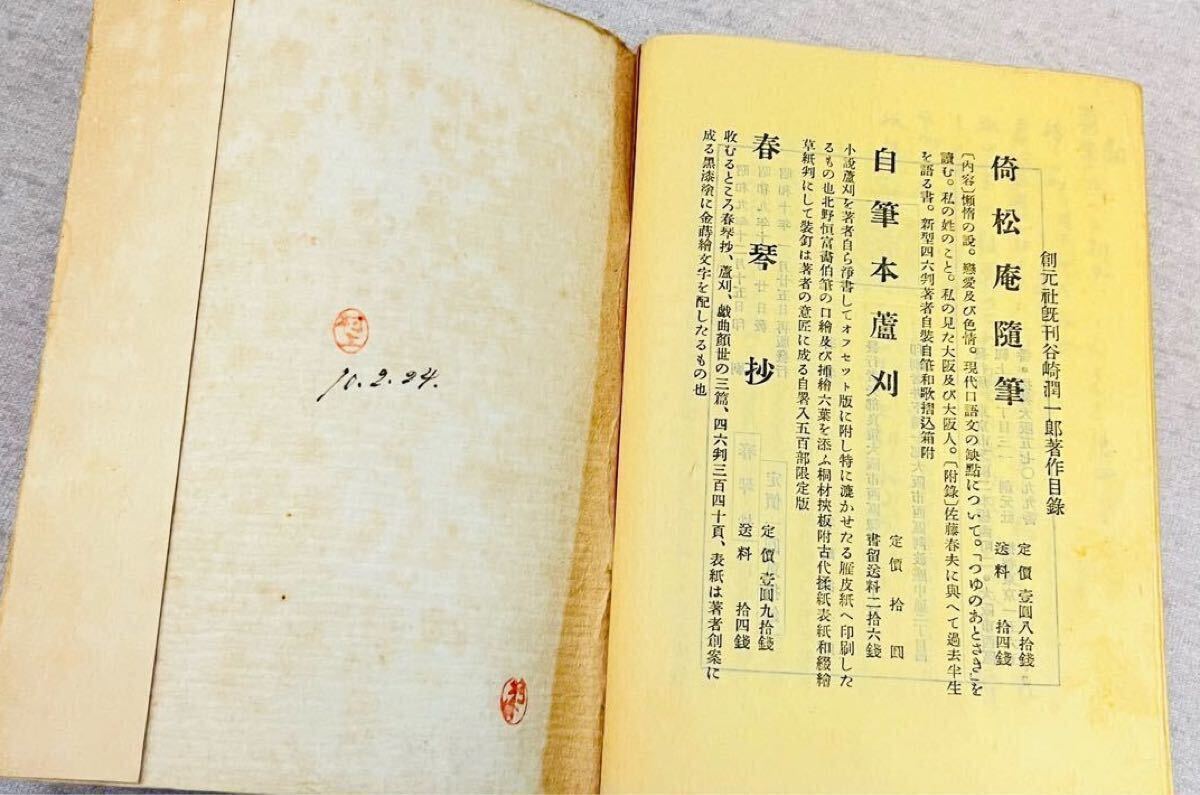 創元社既刊谷崎潤一郎著作目錄
倚松庵隨筆
定價壹圓八拾錢
送料 拾四錢
〔內容〕懶惰の說。戀愛及び色情。現代口語文の缺點について。「つゆのあとさき」を
讀む。私の姓のこと。私の見た大阪及び大阪人。〔附錄〕佐藤春夫に與へて過去半生
を語る書。新型四六判著者自裝自筆和歌摺込箱附
自筆本蘆刈
定價拾圓
書留送料二拾六錢
小說蘆刈を著者自ら淨書してオフセット版に附し特に漉かせたる雁皮紙へ印刷した
るもの也北野恒富畵伯筆の口繪及び揷繪六葉を添ふ桐材挾板附古代揉紙表紙和綴繪
草紙判にして裝釘は著者の意匠に成る自署入五百部限定版
春琴抄
定價壹圓九拾錢
送料 拾四錢
收むるところ春琴抄、蘆刈、戲曲顏世の三篇、四六判三百四十頁、表紙は著者創案に
成る黑漆塗に金蒔繪文字を配したるもの也
10.2.24.